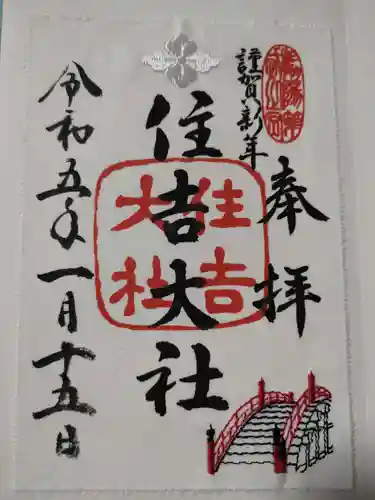 謹賀新年
奉拝
住吉大社
住吉
大社
令和五年一月十五日